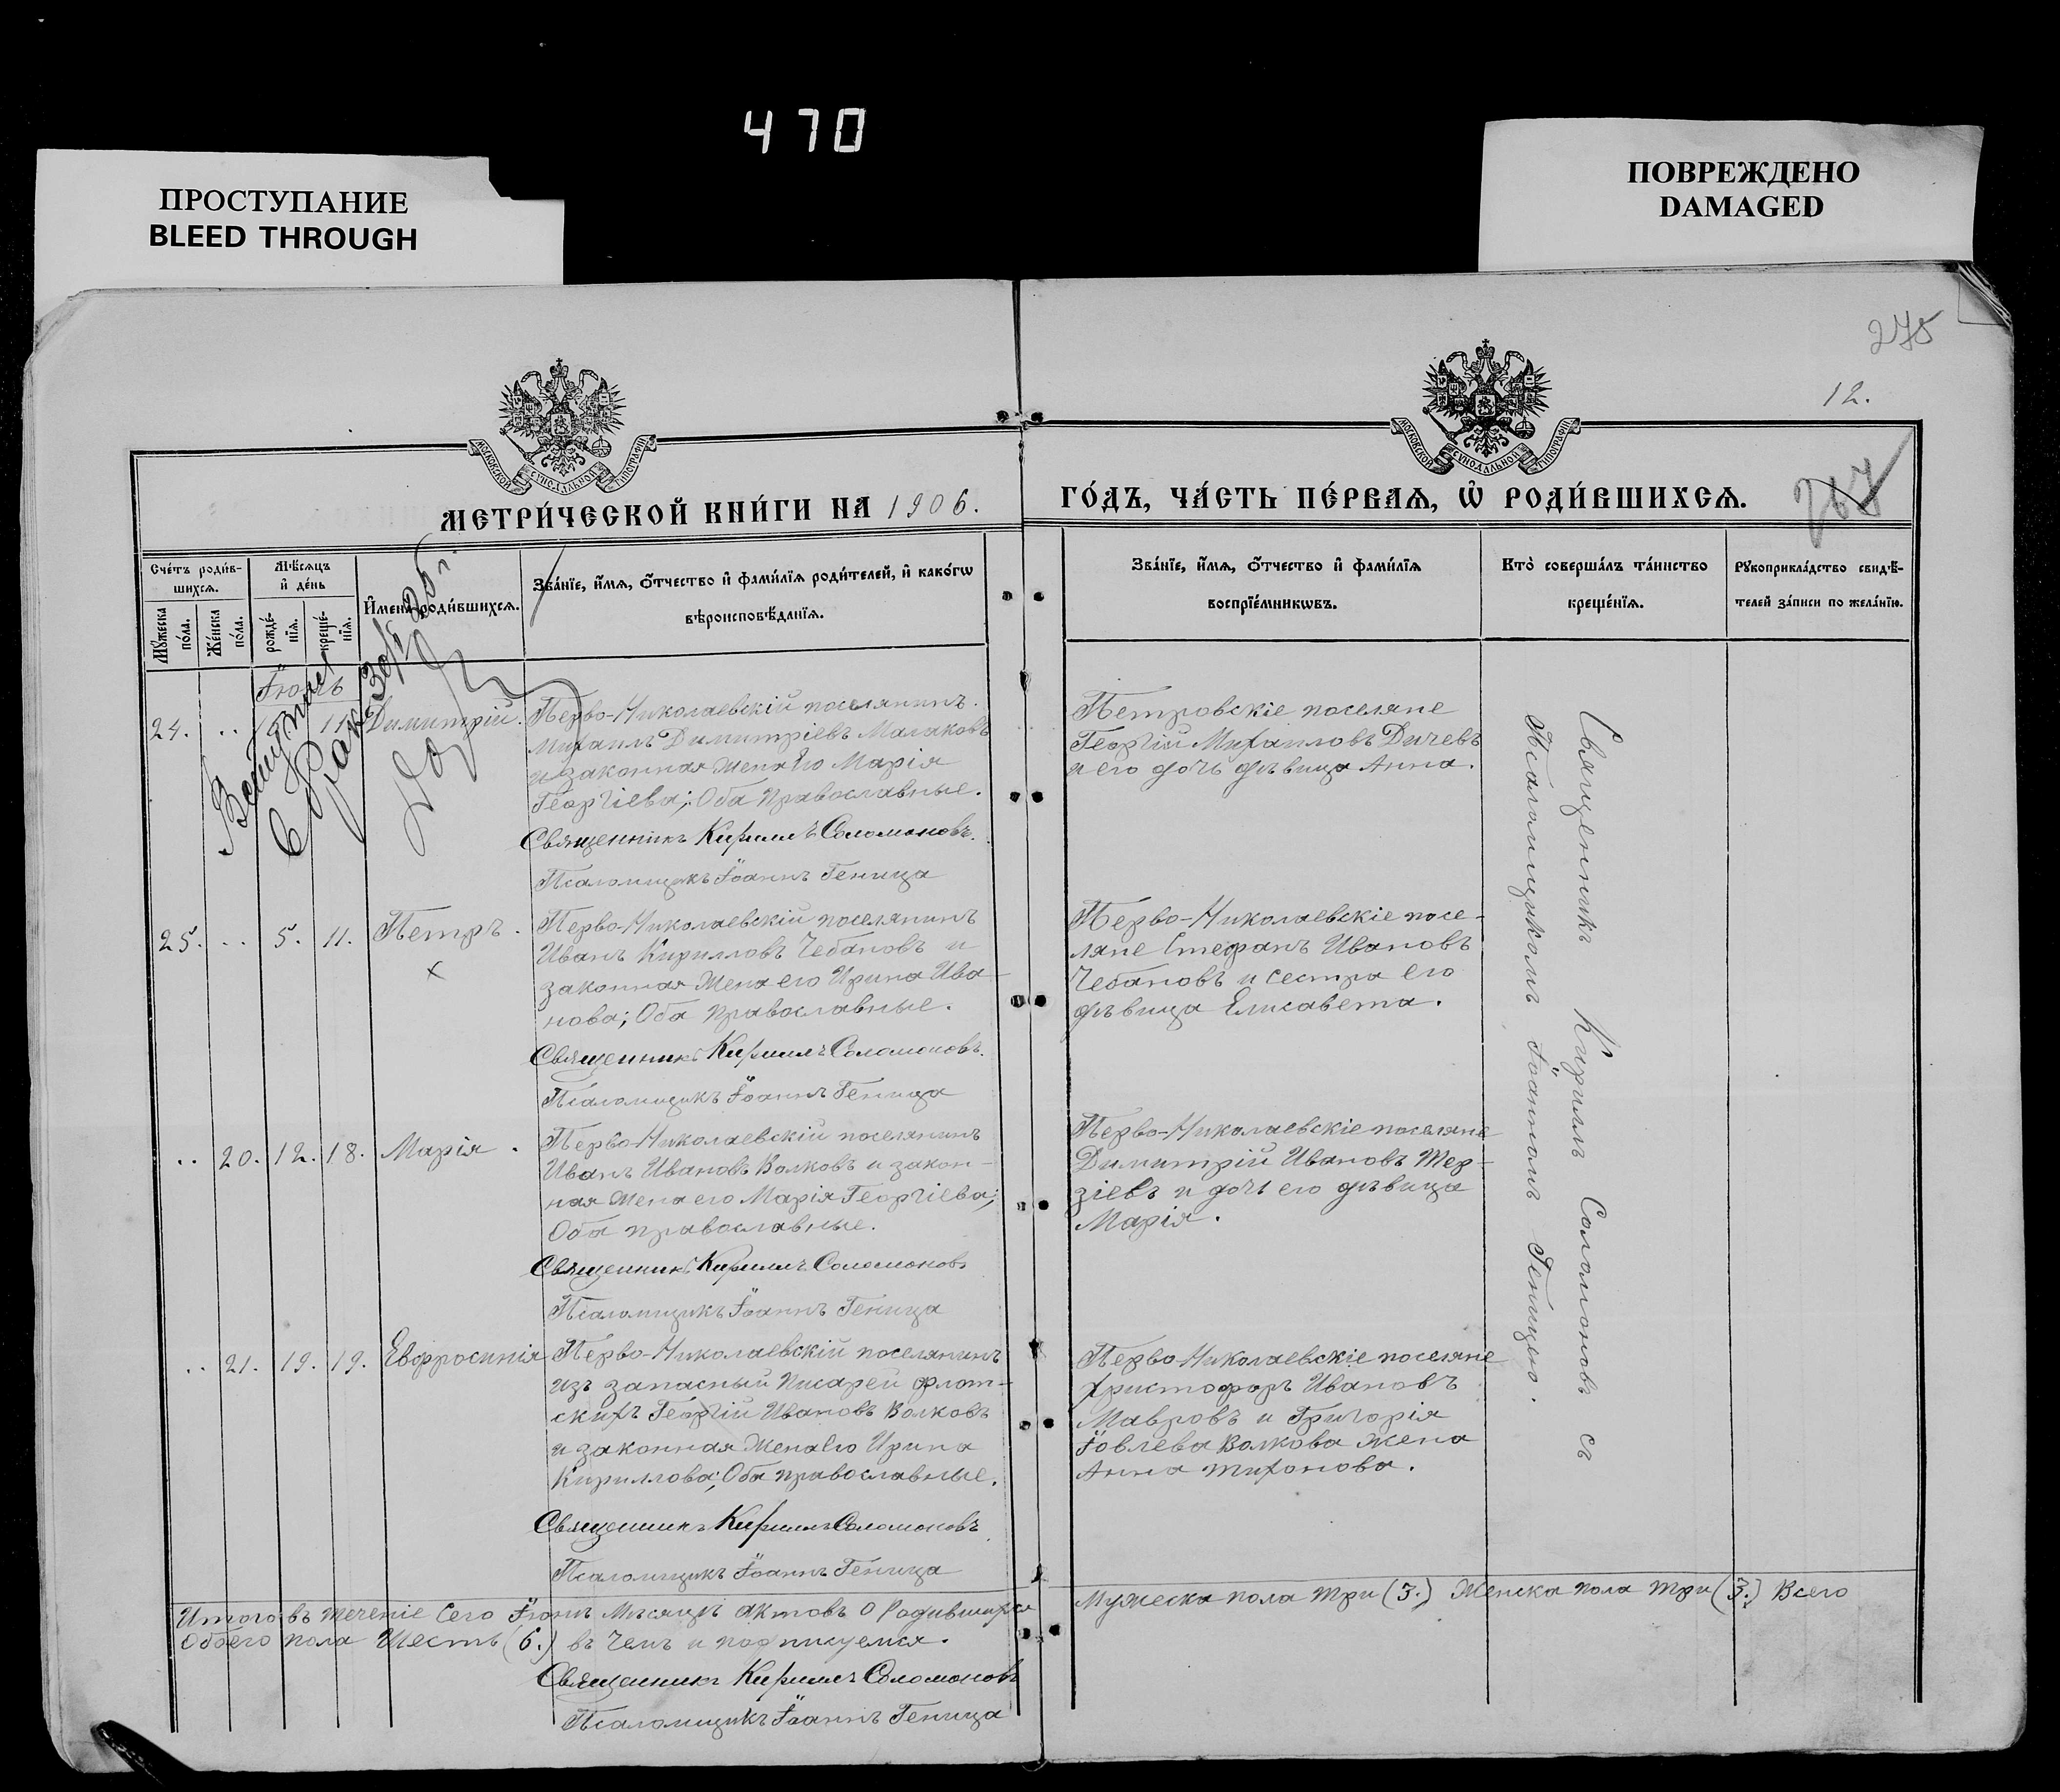 470
ПРОСТУПАНИЕ
BLEED THROUGH
ПОВРЕЖДЕНО
DAMAGED
275
12.
МОСКОВСКОЙ СУНОДАЛЬНОЙ ТИПОГРАФІИ
МОСКОВСКОЙ СУНОДАЛЬНОЙ ТИПОГРАФІИ
МЕТРИ́ЧЕСКОЙ КНИ́ГИ НА 1906.
ГО́ДЪ, ЧА́СТЬ ПЕ́РВАѦ, Ѽ РОДИ́ВШИХСѦ.
267
Счéтъ роди́в-
шихсѧ.
Мꙋ́жеска по́ла.
Же́нска по́ла.
Мѣ́сѧцъ
и҆ де́нь
рожде́-
нїѧ.
креще́-
нїѧ.
И҆мена̀ роди́вшихсѧ.
Зва́нїе, и҆́мѧ, ѻ҆́тчество и҆ фами́лїѧ роди́телей, и҆ како́гѡ
вѣроисповѣ́данїѧ.
Зва́нїе, и҆́мѧ, ѻ҆́тчество и҆ фами́лїѧ
воспрїе́мникѡвъ.
Кто̀ соверша́лъ та́инство
креще́нїѧ.
Рꙋкоприкла́дство свидѣ́-
телей за́писи по жела́нїю.
Іюнь
24. .. 11. Димитрій.
Перво-Николаевскій поселянинъ
Михаилъ Димитріевъ Малаковъ
и законная жена его Марія
Георгіева; Оба православные.
Священникъ Кириллъ Соломоновъ.
Псаломщикъ Іоаннъ Геница
Петровскіе поселяне
Георгій Михаиловъ Дичевъ
и его дочь дѣвица Анна.
25. .. 5. 11. Петръ.
Перво-Николаевскій поселянинъ
Иванъ Кирилловъ Чебановъ и
законная жена его Ирина Ива-
нова; Оба православные.
Священникъ Кириллъ Соломоновъ.
Псаломщикъ Іоаннъ Геница
Перво-Николаевскіе посе-
ляне Стефанъ Ивановъ
Чебановъ и сестра его
дѣвица Елисавета.
.. 20. 12. 18. Марія.
Перво-Николаевскій поселянинъ
Иванъ Ивановъ Волковъ и закон-
ная жена его Марія Георгіева;
Оба православные.
Священникъ Кириллъ Соломоновъ
Псаломщикъ Іоаннъ Геница
Перво-Николаевскіе поселяне
Димитрій Ивановъ Тер-
зіевъ и дочь его дѣвица
Марія.
.. 21. 19. 19. Евфросинія
Перво-Николаевскій поселянинъ
изъ запасный писарей флот-
скихъ Георгій Ивановъ Волковъ
и законная жена его Ирина
Кириллова; Оба православные.
Священникъ Кириллъ Соломоновъ
Псаломщикъ Іоаннъ Геница
Перво-Николаевскіе поселяне
Христофоръ Ивановъ
Мавровъ и Григорія
Іовлева Волкова жена
Анна Тихонова.
Священникъ Кириллъ Соломоновъ съ
Псаломщикомъ Іоанномъ Геницею.
Итого въ теченіе сего Іюнь мѣсяцъ актовъ о родившихся
Мужеска пола три (3.) Женска пола три (3.) Всего
Обоего пола шесть (6.) въ чемъ и подписуемся.
Священникъ Кириллъ Соломоновъ
Псаломщикъ Іоаннъ Геница